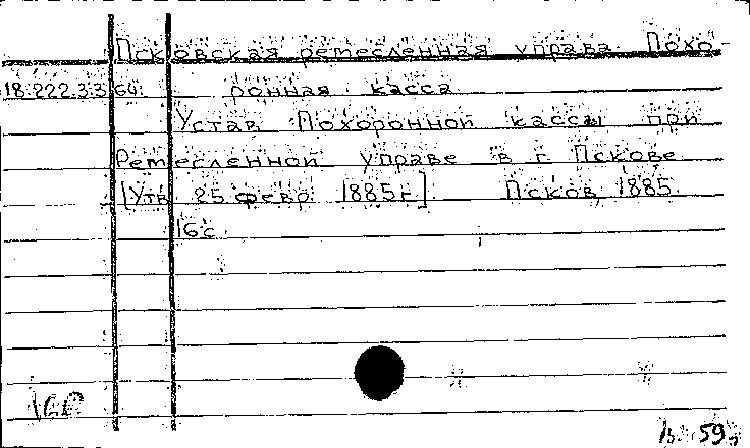 Псковская ремесленная управа. Похо-
18.222.3.364. ронная касса
Устав Похоронной кассы при
Ремесленной управе в г. Пскове
[Утв. 25 февр. 1885 г.] Псков, 1885.
16 с.
59